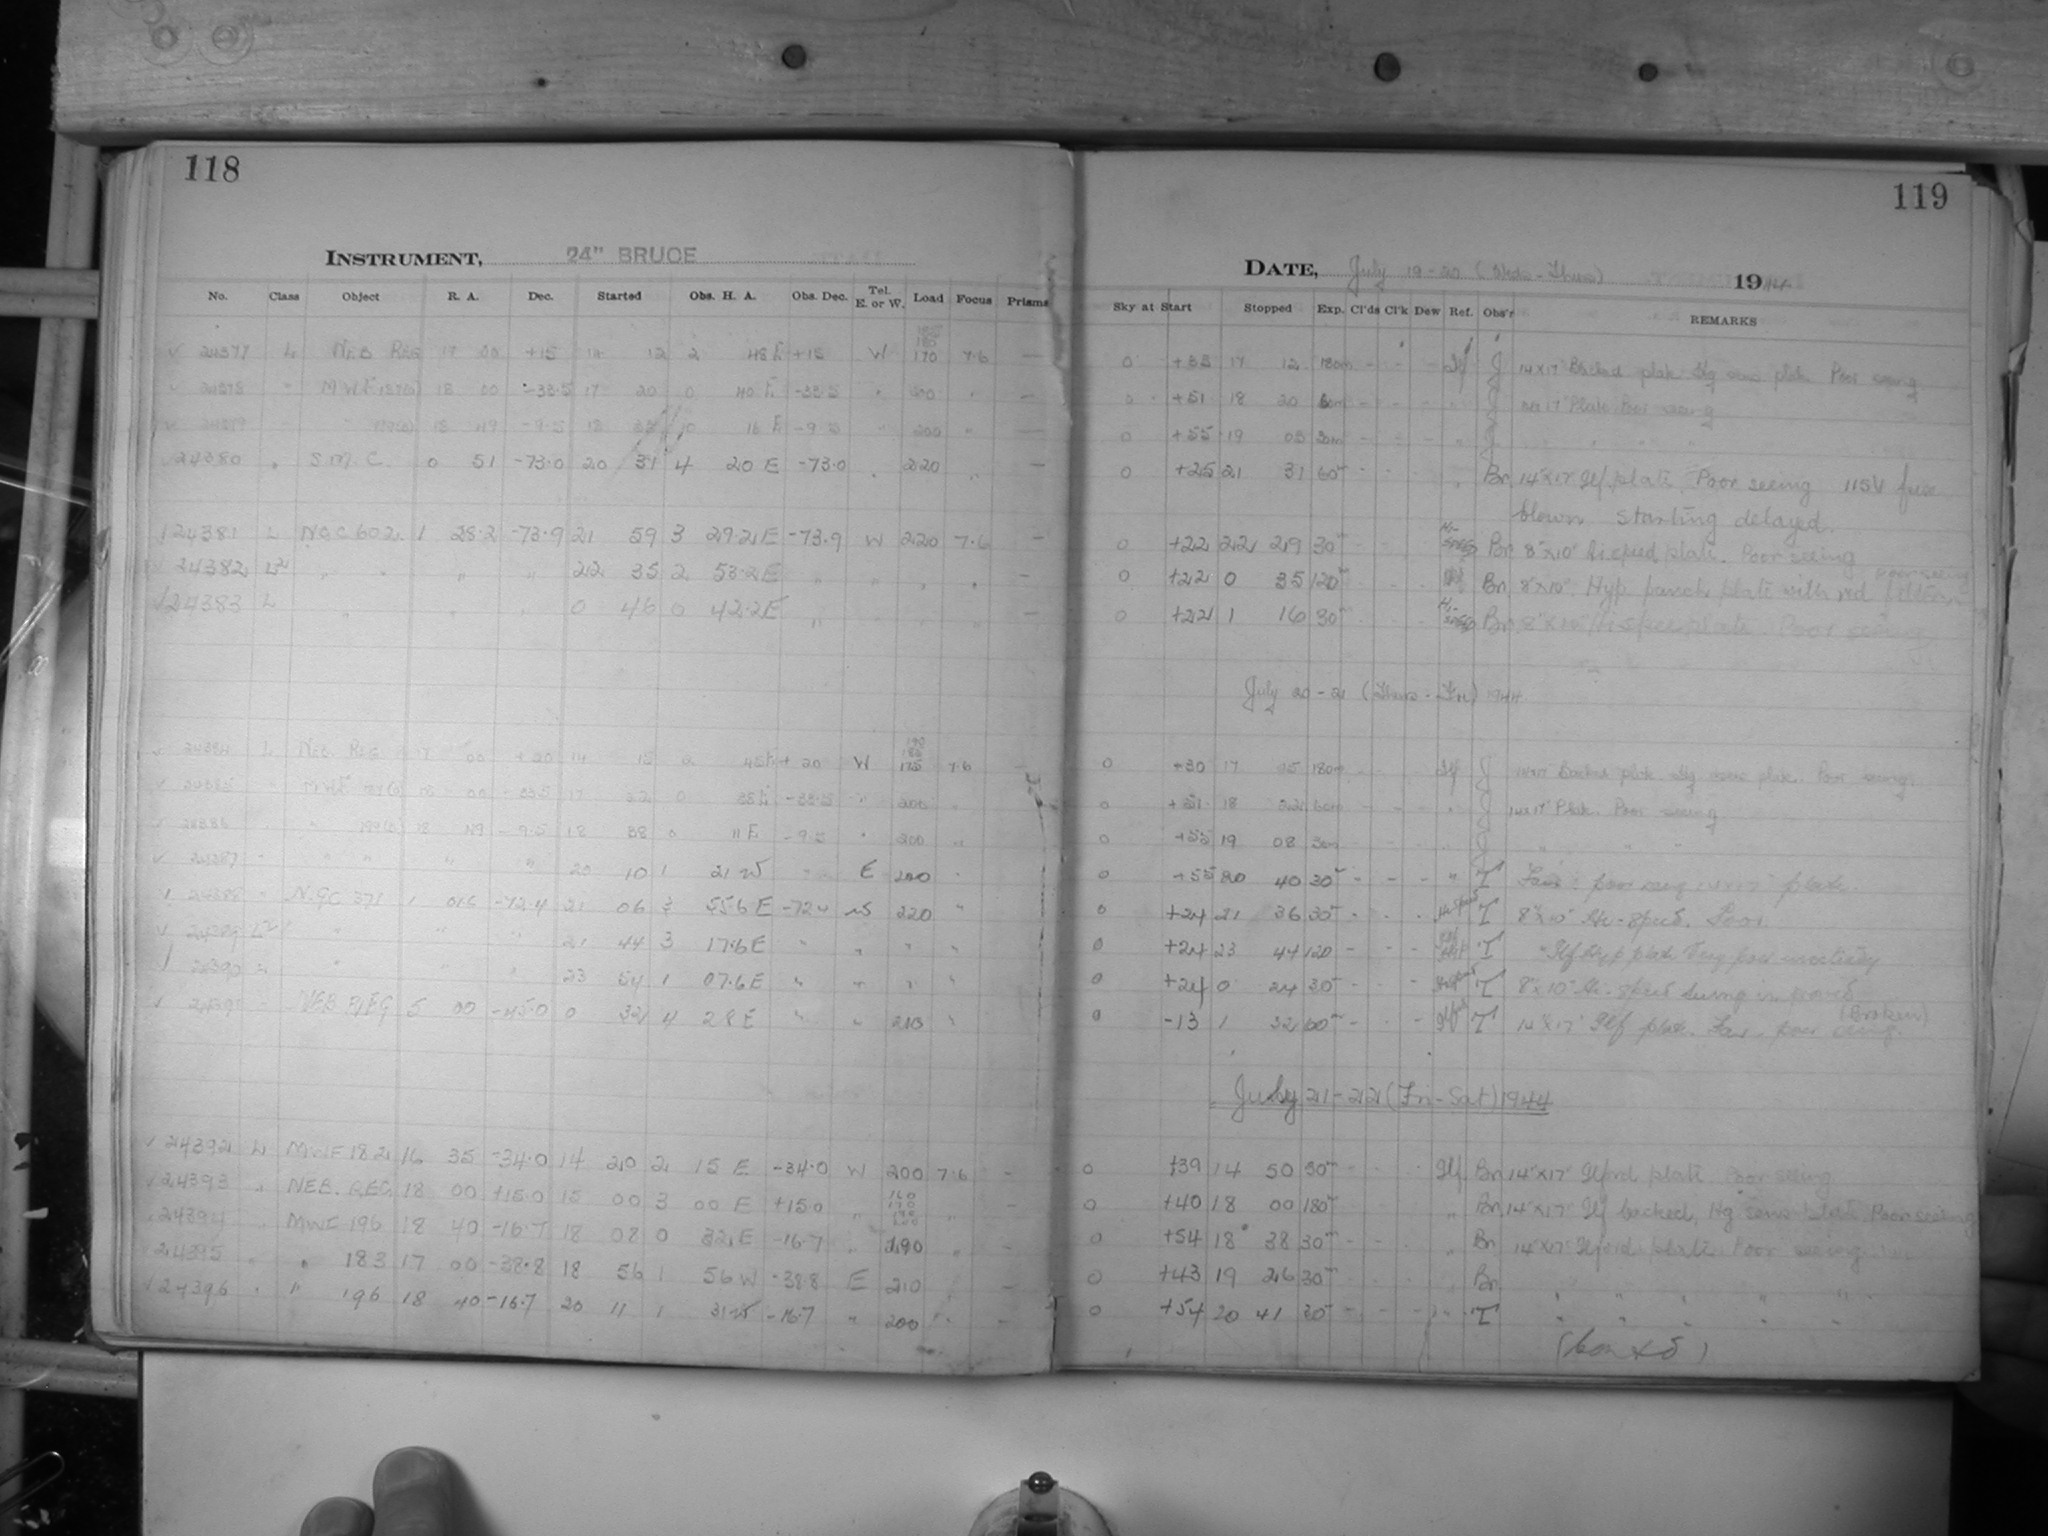 118
119
INSTRUMENT, 24" BRUCE
DATE, July 19-20 (Weds-Thurs) 1944
No. Class Object R. A. Dec. Started Obs. H. A. Obs. Dec. Tel. E. or W. Load Focus Prisms
Sky at Start Stopped Exp. Cl'ds Cl'k Dew Ref. Obs'r REMARKS
√ 24377 L NEB REG 17 00 +15 14 12 2 48 E +15 W 170 7.6 —
0 +35 17 12 180m - - - Ilf J 14x17 Backed plate Poor seeing
√ 24378 " MWF 187 18 00 -33.5 17 20 0 40 E -33.5 " 200 " —
0 +51 18 20 60m - - - " J 14x17 Plate Poor seeing
√ 24379 18 49 -9.5 18 0 16 E -9.5 " 200 " —
0 +55 19 05 30m - - - " J " " " "
24380 " S.M.C. 0 51 -73.0 20 31 4 20 E -73.0 " 220 " —
0 +25 21 31 60m " Br. 14"x17" Ilf. plate. Poor seeing 115V fuse
blown starting delayed.
√ 24381 L NGC 602 1 28.2 -73.9 21 59 3 29.2 E -73.9 W 220 7.6 —
0 +22 22 29 30m Hi-Speed Br. 8"x10" Hi speed plate. Poor seeing
√ 24382 " " " " 22 35 2 53.2 E " " " " —
0 +22 0 35 120m Br. 8"x10" Hyp. panch. plate with red filter poor seeing
√ 24383 L " " " 0 46 0 42.2 E " " " "
0 +22 1 16 30m Hi-Speed Br. 8"x10" Hi speed plate Poor seeing
July 20-21 (Thurs-Fri) 1944
√ 24384 L NEB. REG 17 00 +20 14 15 2 45 E +20 W 175 7.6
0 +30 17 15 180m Ilf J 14x17 Backed plate Poor seeing.
√ 24385 " MWF 187 18 00 -33.5 17 32 0 38 E -33.5 " 200 "
0 +51 18 32 60m " J 14x17 Plate. Poor seeing
√ 24386 " 18 49 -9.5 18 38 0 11 E -9.5 " 200 "
0 +55 19 08 30m J " " "
√ 24387 " " " " " 20 10 1 21 W " E 200 "
0 +55 20 40 30m - - - " T Fair - poor seeing 14x17 plate.
24388 " N.GC 371 1 01.5 -72.4 21 06 3 55.6 E -72.4 W 220 "
0 +24 21 36 30m Hi-Speed T 8"x10" Hi-Speed. Poor
√ 24389 " " " 21 44 3 17.6 E " " " "
0 +24 23 44 120 - - - T " Ilf Hyp plate Very poor
24390 " " " 23 54 1 07.6 E " " " "
0 +24 0 24 30m - - T 8"x10" Hi-Speed Seeing improved
√ 24391 " NEB REG 5 00 -45.0 0 32 4 28 E " " 210 "
0 -13 1 32 60m Ilford T 14"x17" Ilf plate. Fair - poor seeing. (Broken)
July 21-22 (Fri-Sat) 1944
√ 24392 L MWF 182 16 35 -34.0 14 20 2 15 E -34.0 W 200 7.6 -
0 +39 14 50 30m Ilf. Br. 14"x17" Ilford plate Poor seeing
√ 24393 " NEB. REG. 18 00 +15.0 15 00 3 00 E +15.0 "
0 +40 18 00 180m " Br. 14"x17" Ilf backed, Hg sens plate Poor seeing
24394 " MWF 196 18 40 -16.7 18 08 0 32 E -16.7 " 190 " -
0 +54 18 38 30m " Br. 14"x17" Ilford plate Poor seeing
√ 24395 " " 183 17 00 -38.8 18 56 1 56 W -38.8 E 210 —
0 +43 19 26 30m " Br. " " " " "
√ 24396 " " 196 18 40 -16.7 20 11 1 31 W -16.7 " 200 " -
0 +54 20 41 30m - - - " T " " " " "
(Contd)